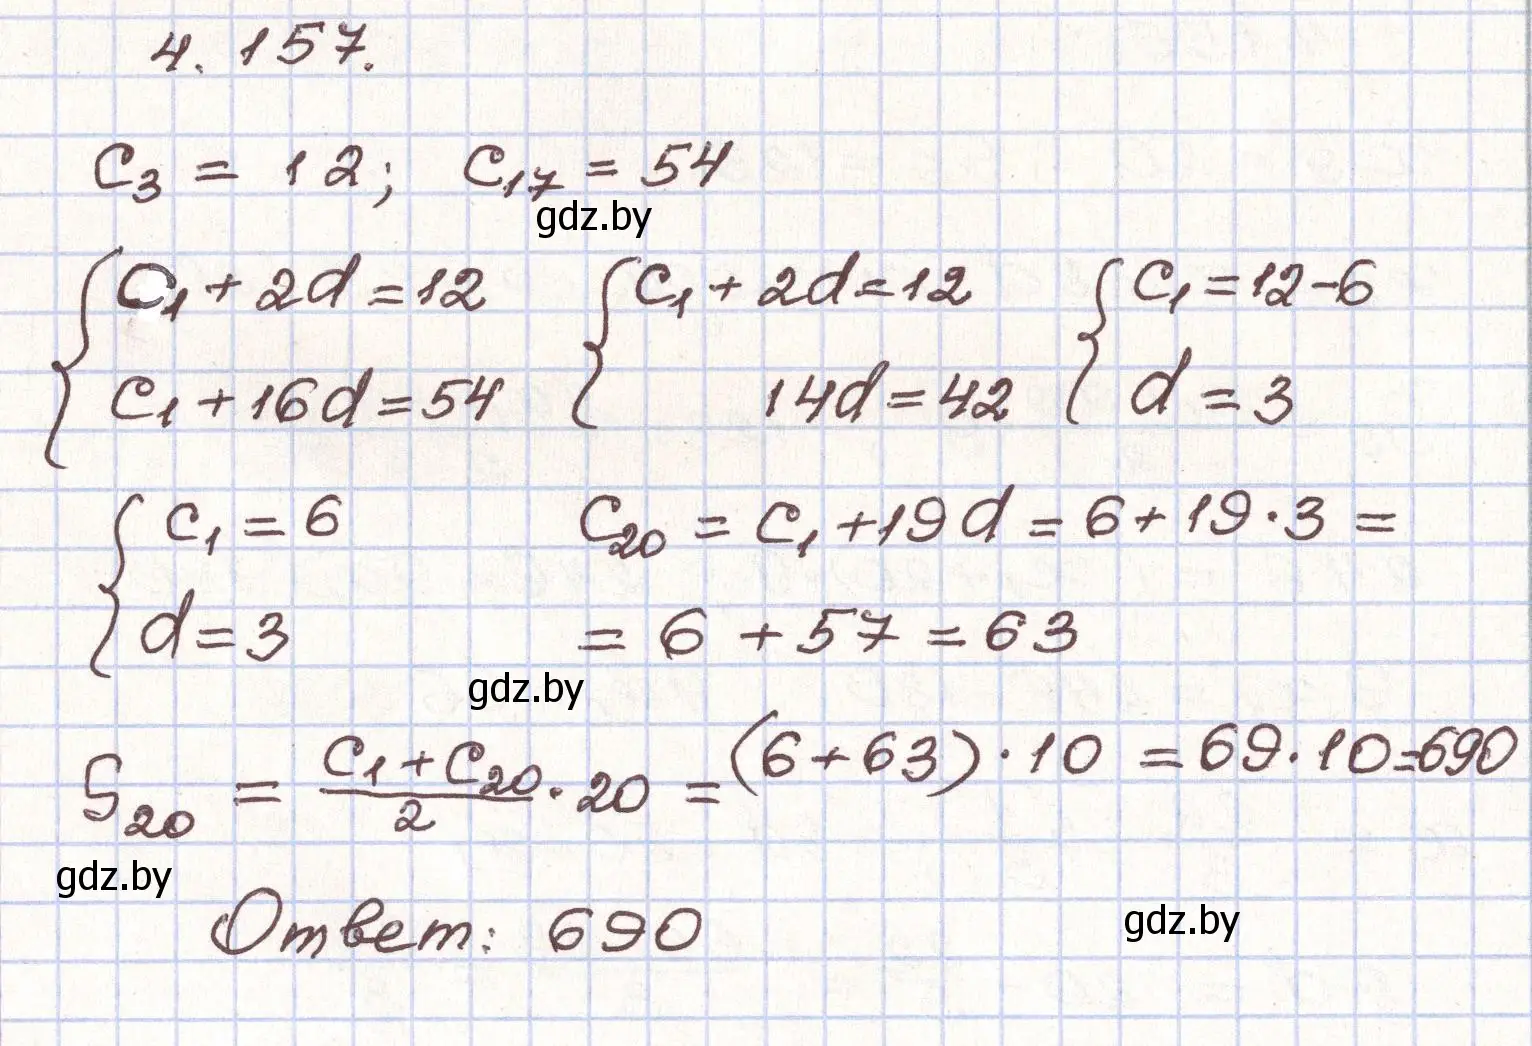 4.157.
C₃ = 12; C₁₇ = 54
gdz.by
{ C₁ + 2d = 12 { C₁ + 2d = 12 { C₁ = 12 - 6
C₁ + 16d = 54 14d = 42 d = 3
{ C₁ = 6 C₂₀ = C₁ + 19d = 6 + 19 · 3 =
d = 3 = 6 + 57 = 63
gdz.by
S₂₀ = (C₁ + C₂₀)/2 · 20 = (6 + 63) · 10 = 69 · 10 = 690
gdz.by
Ответ: 690
gdz.by